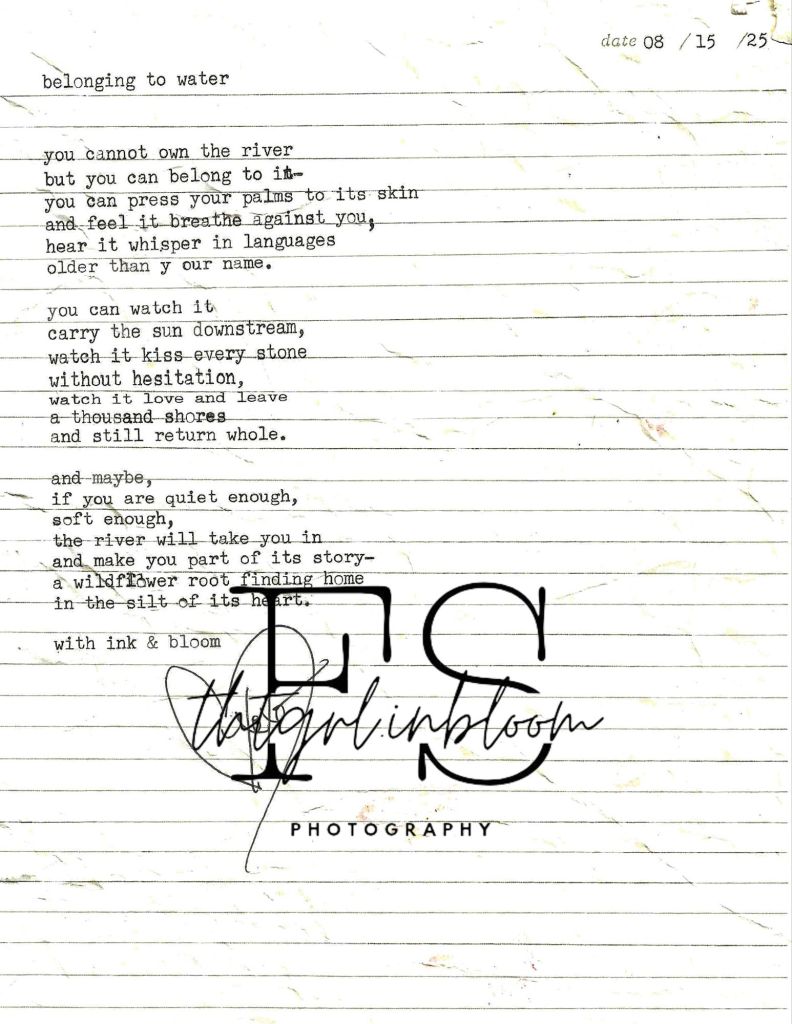 date 08 / 15 /25
belonging to water
you cannot own the river
but you can belong to it-
you can press your palms to its skin
and feel it breathe against you,
hear it whisper in languages
older than y our name.
you can watch it
carry the sun downstream,
watch it kiss every stone
without hesitation,
watch it love and leave
a thousand shores
and still return whole.
and maybe,
if you are quiet enough,
soft enough,
the river will take you in
and make you part of its story-
a wildflower root finding home
in the silt of its heart.
with ink & bloom
FS
thatgirl.inbloom
PHOTOGRAPHY